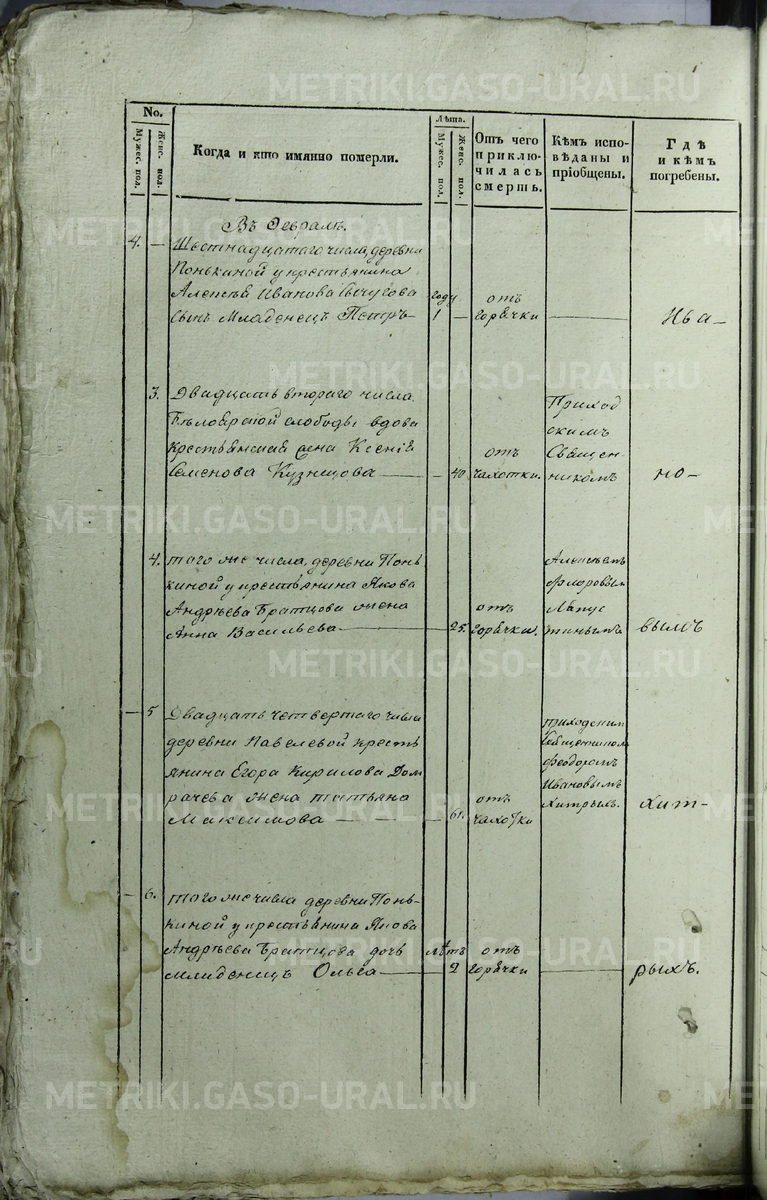 METRIKI.GASO-URAL.RU
No.
Мужес. пол.
Женс. пол.
Когда и кто имянно померли.
Лѣта.
Мужес. пол.
Женс. пол.
Отъ чего приклю-чилась смерть.
Кѣмъ испо-вѣданы и пріобщены.
Гдѣ и кѣмъ погребены.
Въ Февралѣ.
4. — Шестнадцатаго числа, деревни
Понькиной у крестьянина
Алексѣя Иванова
сынъ Младенецъ Петръ
году 1 —
отъ горячки
—
Ива-
3. Двадцать втораго числа
Бѣлоярской слободы вдова
крестьянская жена Ксенія
Семенова Кузнецова —
— 40
отъ чахотки.
Приход
скимъ
Священ-
никомъ
но-
4. того же числа, деревни Понь
киной у крестьянина Якова
Андрѣева Братцова жена
Анна Васильева —
— 25.
отъ горячки.
Алексѣемъ
Флоровым
Лапус
тинымъ
вымъ
— 5 Двадцать четвертаго числа
деревни Павелевой кресть
янина Егора Кирилова Дом
рачева жена татьяна
Максимова —
— 61.
отъ чахотки
приходским
Священником
Феодоромъ
Ивановымъ
Хитрых.
Хит-
— 6. того же числа деревни Понь-
киной у крестьянина Якова
Андрѣева Братцова дочь
младенецъ Ольга —
лѣтъ 2
отъ горячки
—
рыхъ.